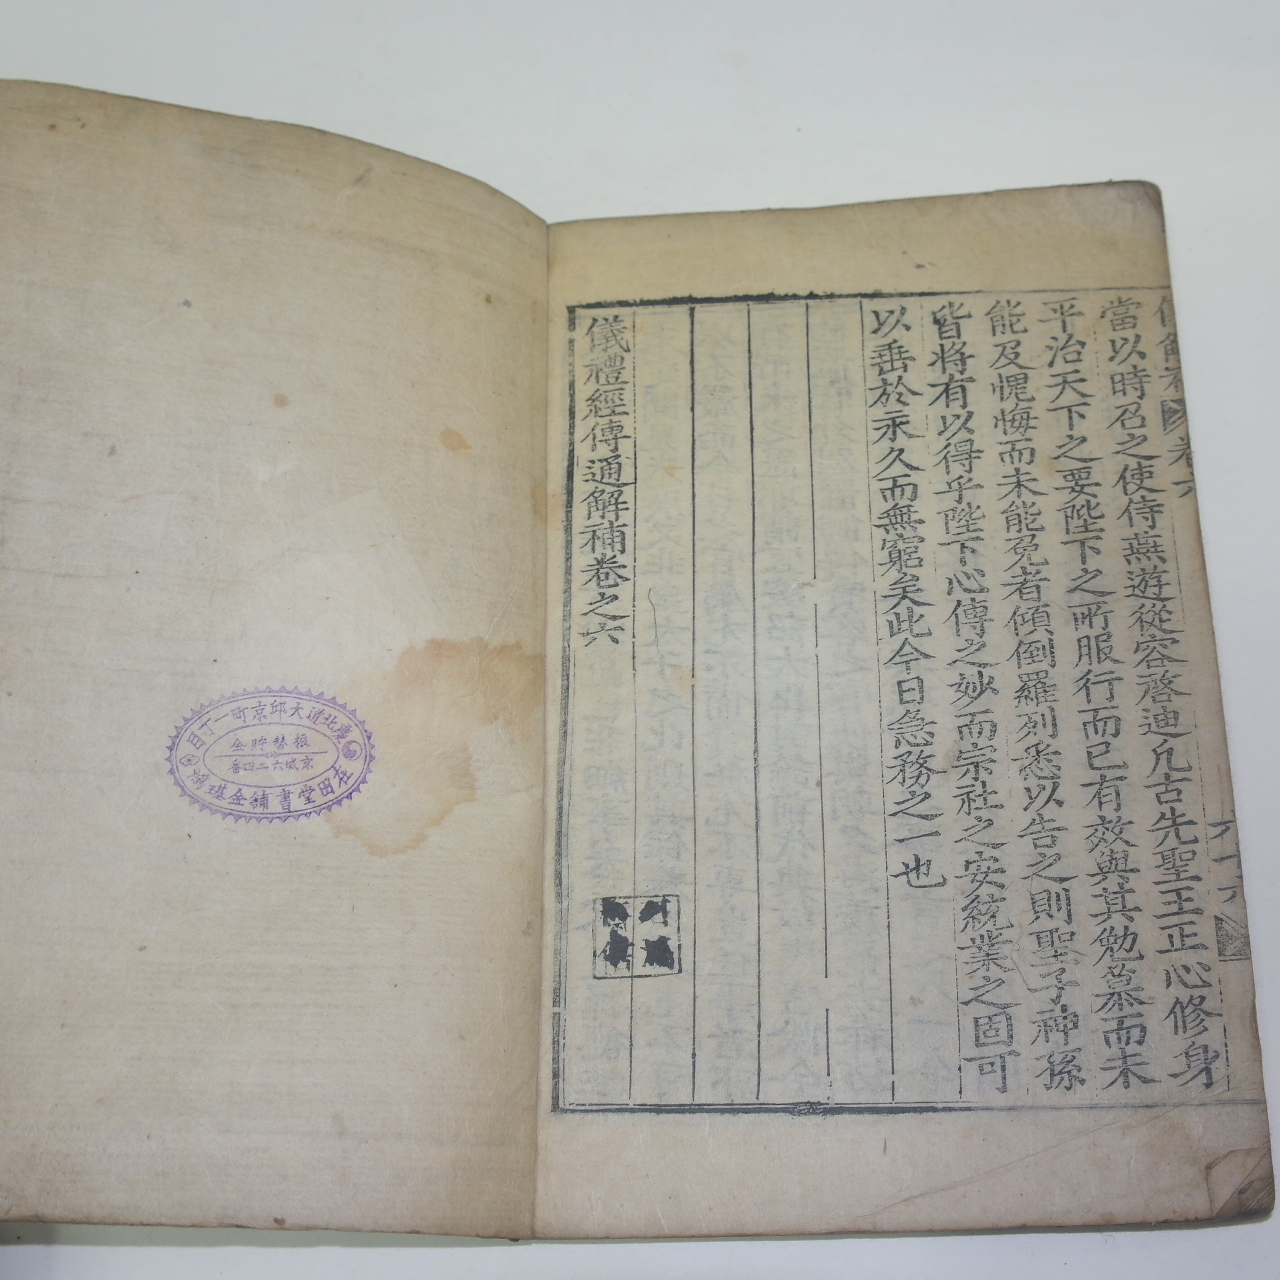 儀解補 卷六 六十六
當以時召之使侍燕遊從容啓迪凡古先聖王正心修身
平治天下之要陛下之所服行而已有效與其勉慕而未
能及愧悔而未能免者傾倒羅列悉以告之則聖子神孫
皆將有以得乎陛下心傳之妙而宗社之安統業之固可
以垂於永久而無窮矣此今日急務之一也
儀禮經傳通解補卷之六
慶北道大邱京町一丁目
振替貯金
京城六二四番
在田堂書舖金琪